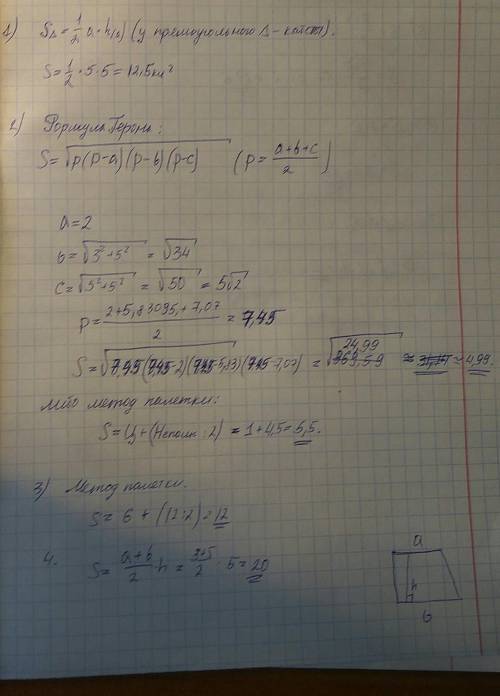 1) S△ = 1/2 a · h(a) (у прямоугольного △ - катет).
S = 1/2 · 5 · 5 = 12,5 км²
2) Формула Герона:
S = √p(p-a)(p-b)(p-c) (p = a+b+c/2)
a = 2
b = √3²+5² = √34
c = √5²+5² = √50 = 5√2
p = 2+5,83095,+7,07/2 = 7,45
S = √7,45(7,45-2)(7,45-5,83)(7,45-7,07) = √24,99 ≈ 4,99.
либо метод палетки:
S = Ц + (Неполн : 2) = 1 + 4,5 = 5,5.
3) Метод палетки.
S = 6 + (12:2) = 12
4. S = a+b/2 · h = 3+5/2 · 5 = 20
a
h
b